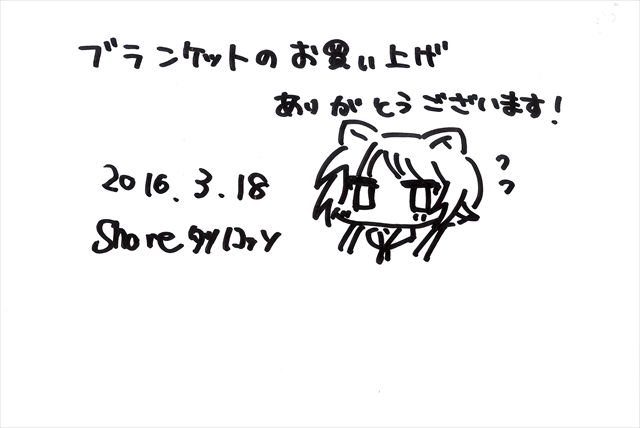 ブランケットのお買い上げ
ありがとうございます!
2016.3.18
Share